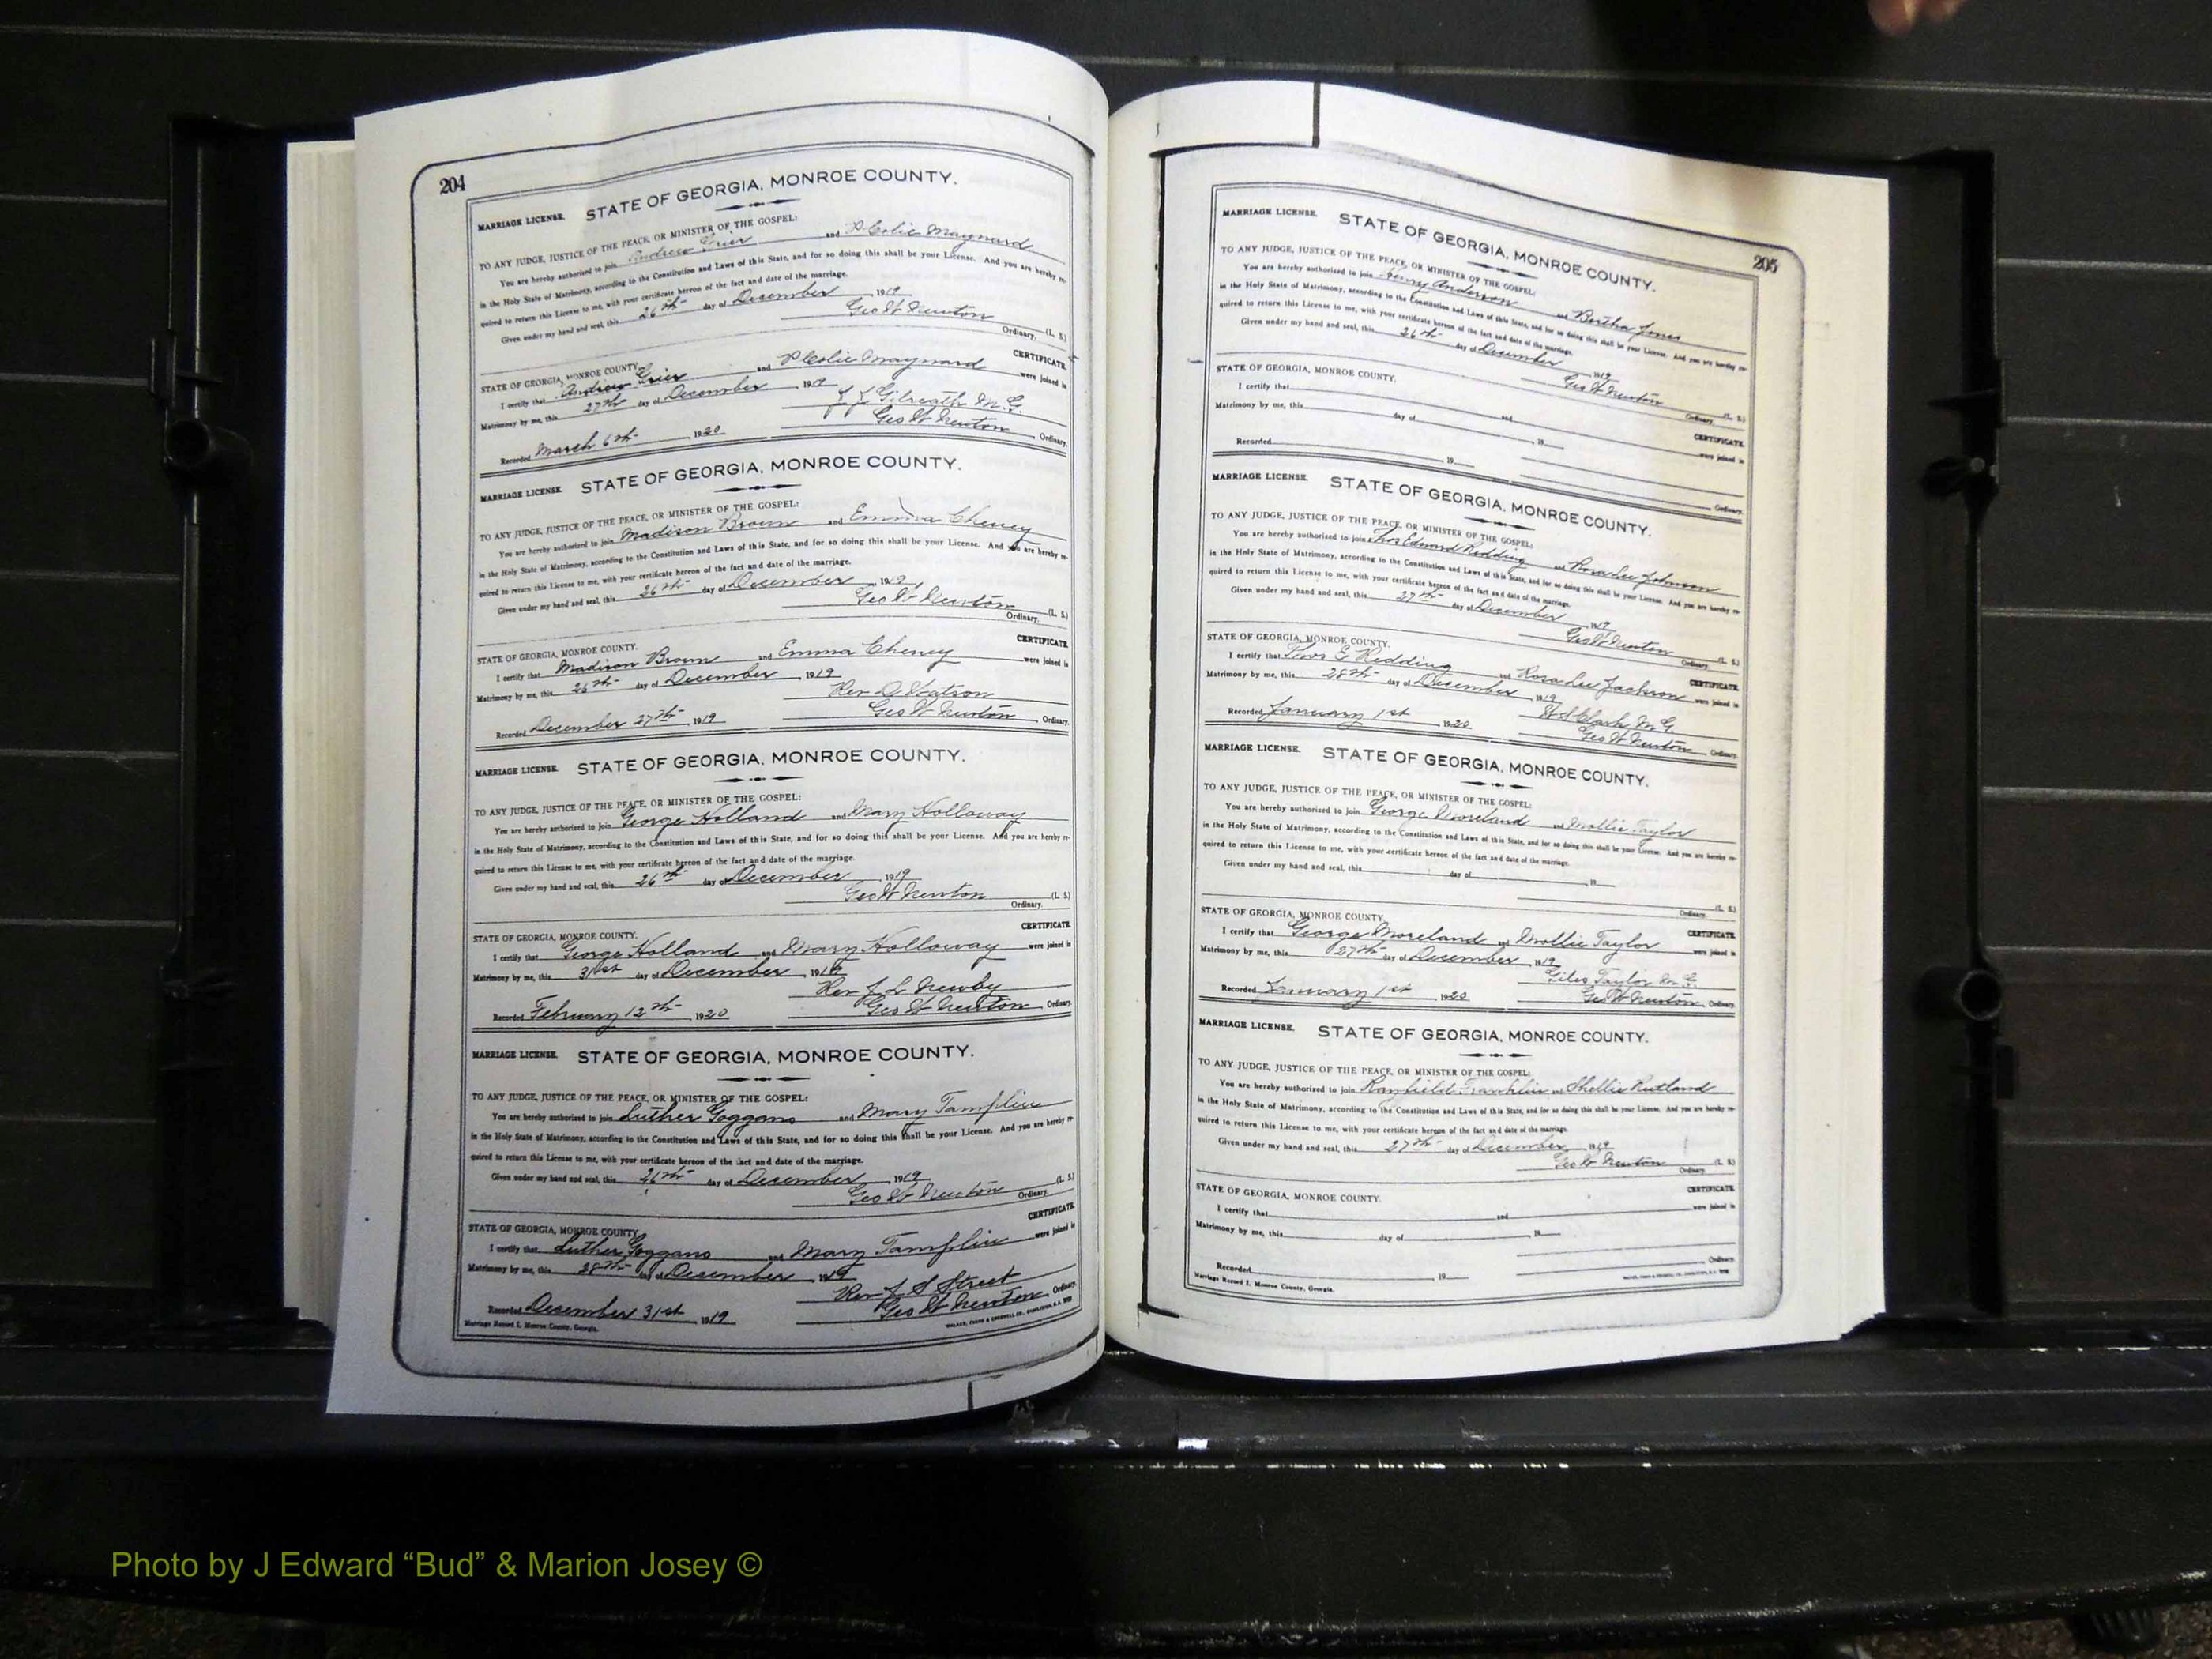 204
MARRIAGE LICENSE. STATE OF GEORGIA, MONROE COUNTY.
TO ANY JUDGE, JUSTICE OF THE PEACE, OR MINISTER OF THE GOSPEL:
You are hereby authorized to join Andrew Grier and Maynard
in the Holy State of Matrimony, according to the Constitution and Laws of this State, and for so doing this shall be your License. And you are hereby re-
quired to return this License to me, with your certificate hereon of the fact and date of the marriage.
Given under my hand and seal, this 26th day of December 1919
Geo W Newton (L. S.)
Ordinary.
STATE OF GEORGIA, MONROE COUNTY. CERTIFICATE.
I certify that Andrew Grier and Maynard were joined in
Matrimony by me, this 27th day of December, 1919
J L Gilreath M.G.
Recorded March 6th 1920 Geo W Newton, Ordinary.
MARRIAGE LICENSE. STATE OF GEORGIA, MONROE COUNTY.
TO ANY JUDGE, JUSTICE OF THE PEACE, OR MINISTER OF THE GOSPEL:
You are hereby authorized to join Madison Brown and Emma Cheney
in the Holy State of Matrimony, according to the Constitution and Laws of this State, and for so doing this shall be your License. And you are hereby re-
quired to return this License to me, with your certificate hereon of the fact and date of the marriage.
Given under my hand and seal, this 26th day of December, 1919,
Geo W Newton (L. S.)
Ordinary.
STATE OF GEORGIA, MONROE COUNTY. CERTIFICATE.
I certify that Madison Brown and Emma Cheney were joined in
Matrimony by me, this 26th day of December, 1919
Rev D Watson
Recorded December 27th, 1919 Geo W Newton, Ordinary.
MARRIAGE LICENSE. STATE OF GEORGIA, MONROE COUNTY.
TO ANY JUDGE, JUSTICE OF THE PEACE, OR MINISTER OF THE GOSPEL:
You are hereby authorized to join George Holland and Mary Holloway
in the Holy State of Matrimony, according to the Constitution and Laws of this State, and for so doing this shall be your License. And you are hereby re-
quired to return this License to me, with your certificate hereon of the fact and date of the marriage.
Given under my hand and seal, this 26th day of December, 1919
Geo W Newton (L. S.)
Ordinary.
STATE OF GEORGIA, MONROE COUNTY. CERTIFICATE.
I certify that George Holland and Mary Holloway were joined in
Matrimony by me, this 31st day of December, 1919
Rev J L Newby
Recorded February 12th, 1920 Geo W Newton, Ordinary.
MARRIAGE LICENSE. STATE OF GEORGIA, MONROE COUNTY.
TO ANY JUDGE, JUSTICE OF THE PEACE, OR MINISTER OF THE GOSPEL:
You are hereby authorized to join Luther Goggans and Mary Tamplin
in the Holy State of Matrimony, according to the Constitution and Laws of this State, and for so doing this shall be your License. And you are hereby re-
quired to return this License to me, with your certificate hereon of the fact and date of the marriage.
Given under my hand and seal, this 26th day of December, 1919
Geo W Newton (L. S.)
Ordinary.
STATE OF GEORGIA, MONROE COUNTY. CERTIFICATE.
I certify that Luther Goggans and Mary Tamplin were joined in
Matrimony by me, this 28th day of December, 1919
Rev J S Street
Recorded December 31st, 1919 Geo W Newton, Ordinary.
Marriage Record I, Monroe County, Georgia.
205
MARRIAGE LICENSE. STATE OF GEORGIA, MONROE COUNTY.
TO ANY JUDGE, JUSTICE OF THE PEACE, OR MINISTER OF THE GOSPEL:
You are hereby authorized to join Henry Anderson and Bertha Jones
in the Holy State of Matrimony, according to the Constitution and Laws of this State, and for so doing this shall be your License. And you are hereby re-
quired to return this License to me, with your certificate hereon of the fact and date of the marriage.
Given under my hand and seal, this 26th day of December, 1919
Geo W Newton (L. S.)
Ordinary.
STATE OF GEORGIA, MONROE COUNTY. CERTIFICATE.
I certify that and were joined in
Matrimony by me, this day of , 19
Recorded 19 Ordinary.
MARRIAGE LICENSE. STATE OF GEORGIA, MONROE COUNTY.
TO ANY JUDGE, JUSTICE OF THE PEACE, OR MINISTER OF THE GOSPEL:
You are hereby authorized to join Thos Edward Redding and Rosa Lee Johnson
in the Holy State of Matrimony, according to the Constitution and Laws of this State, and for so doing this shall be your License. And you are hereby re-
quired to return this License to me, with your certificate hereon of the fact and date of the marriage.
Given under my hand and seal, this 27th day of December, 1919
Geo W Newton (L. S.)
Ordinary.
STATE OF GEORGIA, MONROE COUNTY. CERTIFICATE.
I certify that Thos E Redding and Rosa Lee Jackson were joined in
Matrimony by me, this 28th day of December, 1919
W S Clark M.G.
Recorded January 1st, 1920 Geo W Newton, Ordinary.
MARRIAGE LICENSE. STATE OF GEORGIA, MONROE COUNTY.
TO ANY JUDGE, JUSTICE OF THE PEACE, OR MINISTER OF THE GOSPEL:
You are hereby authorized to join George Moreland and Mollie Taylor
in the Holy State of Matrimony, according to the Constitution and Laws of this State, and for so doing this shall be your License. And you are hereby re-
quired to return this License to me, with your certificate hereon of the fact and date of the marriage.
Given under my hand and seal, this day of , 19
(L. S.)
Ordinary.
STATE OF GEORGIA, MONROE COUNTY. CERTIFICATE.
I certify that George Moreland and Mollie Taylor were joined in
Matrimony by me, this 27th day of December, 1919
Giles Taylor M.G.
Recorded January 1st, 1920 Geo W Newton, Ordinary.
MARRIAGE LICENSE. STATE OF GEORGIA, MONROE COUNTY.
TO ANY JUDGE, JUSTICE OF THE PEACE, OR MINISTER OF THE GOSPEL:
You are hereby authorized to join Ranfield Franklin and Shellie Rutland
in the Holy State of Matrimony, according to the Constitution and Laws of this State, and for so doing this shall be your License. And you are hereby re-
quired to return this License to me, with your certificate hereon of the fact and date of the marriage.
Given under my hand and seal, this 27th day of December, 1919
Geo W Newton (L. S.)
Ordinary.
STATE OF GEORGIA, MONROE COUNTY. CERTIFICATE.
I certify that and were joined in
Matrimony by me, this day of , 19
Recorded 19 Ordinary.
Marriage Record I, Monroe County, Georgia.
Photo by J Edward “Bud” & Marion Josey ©